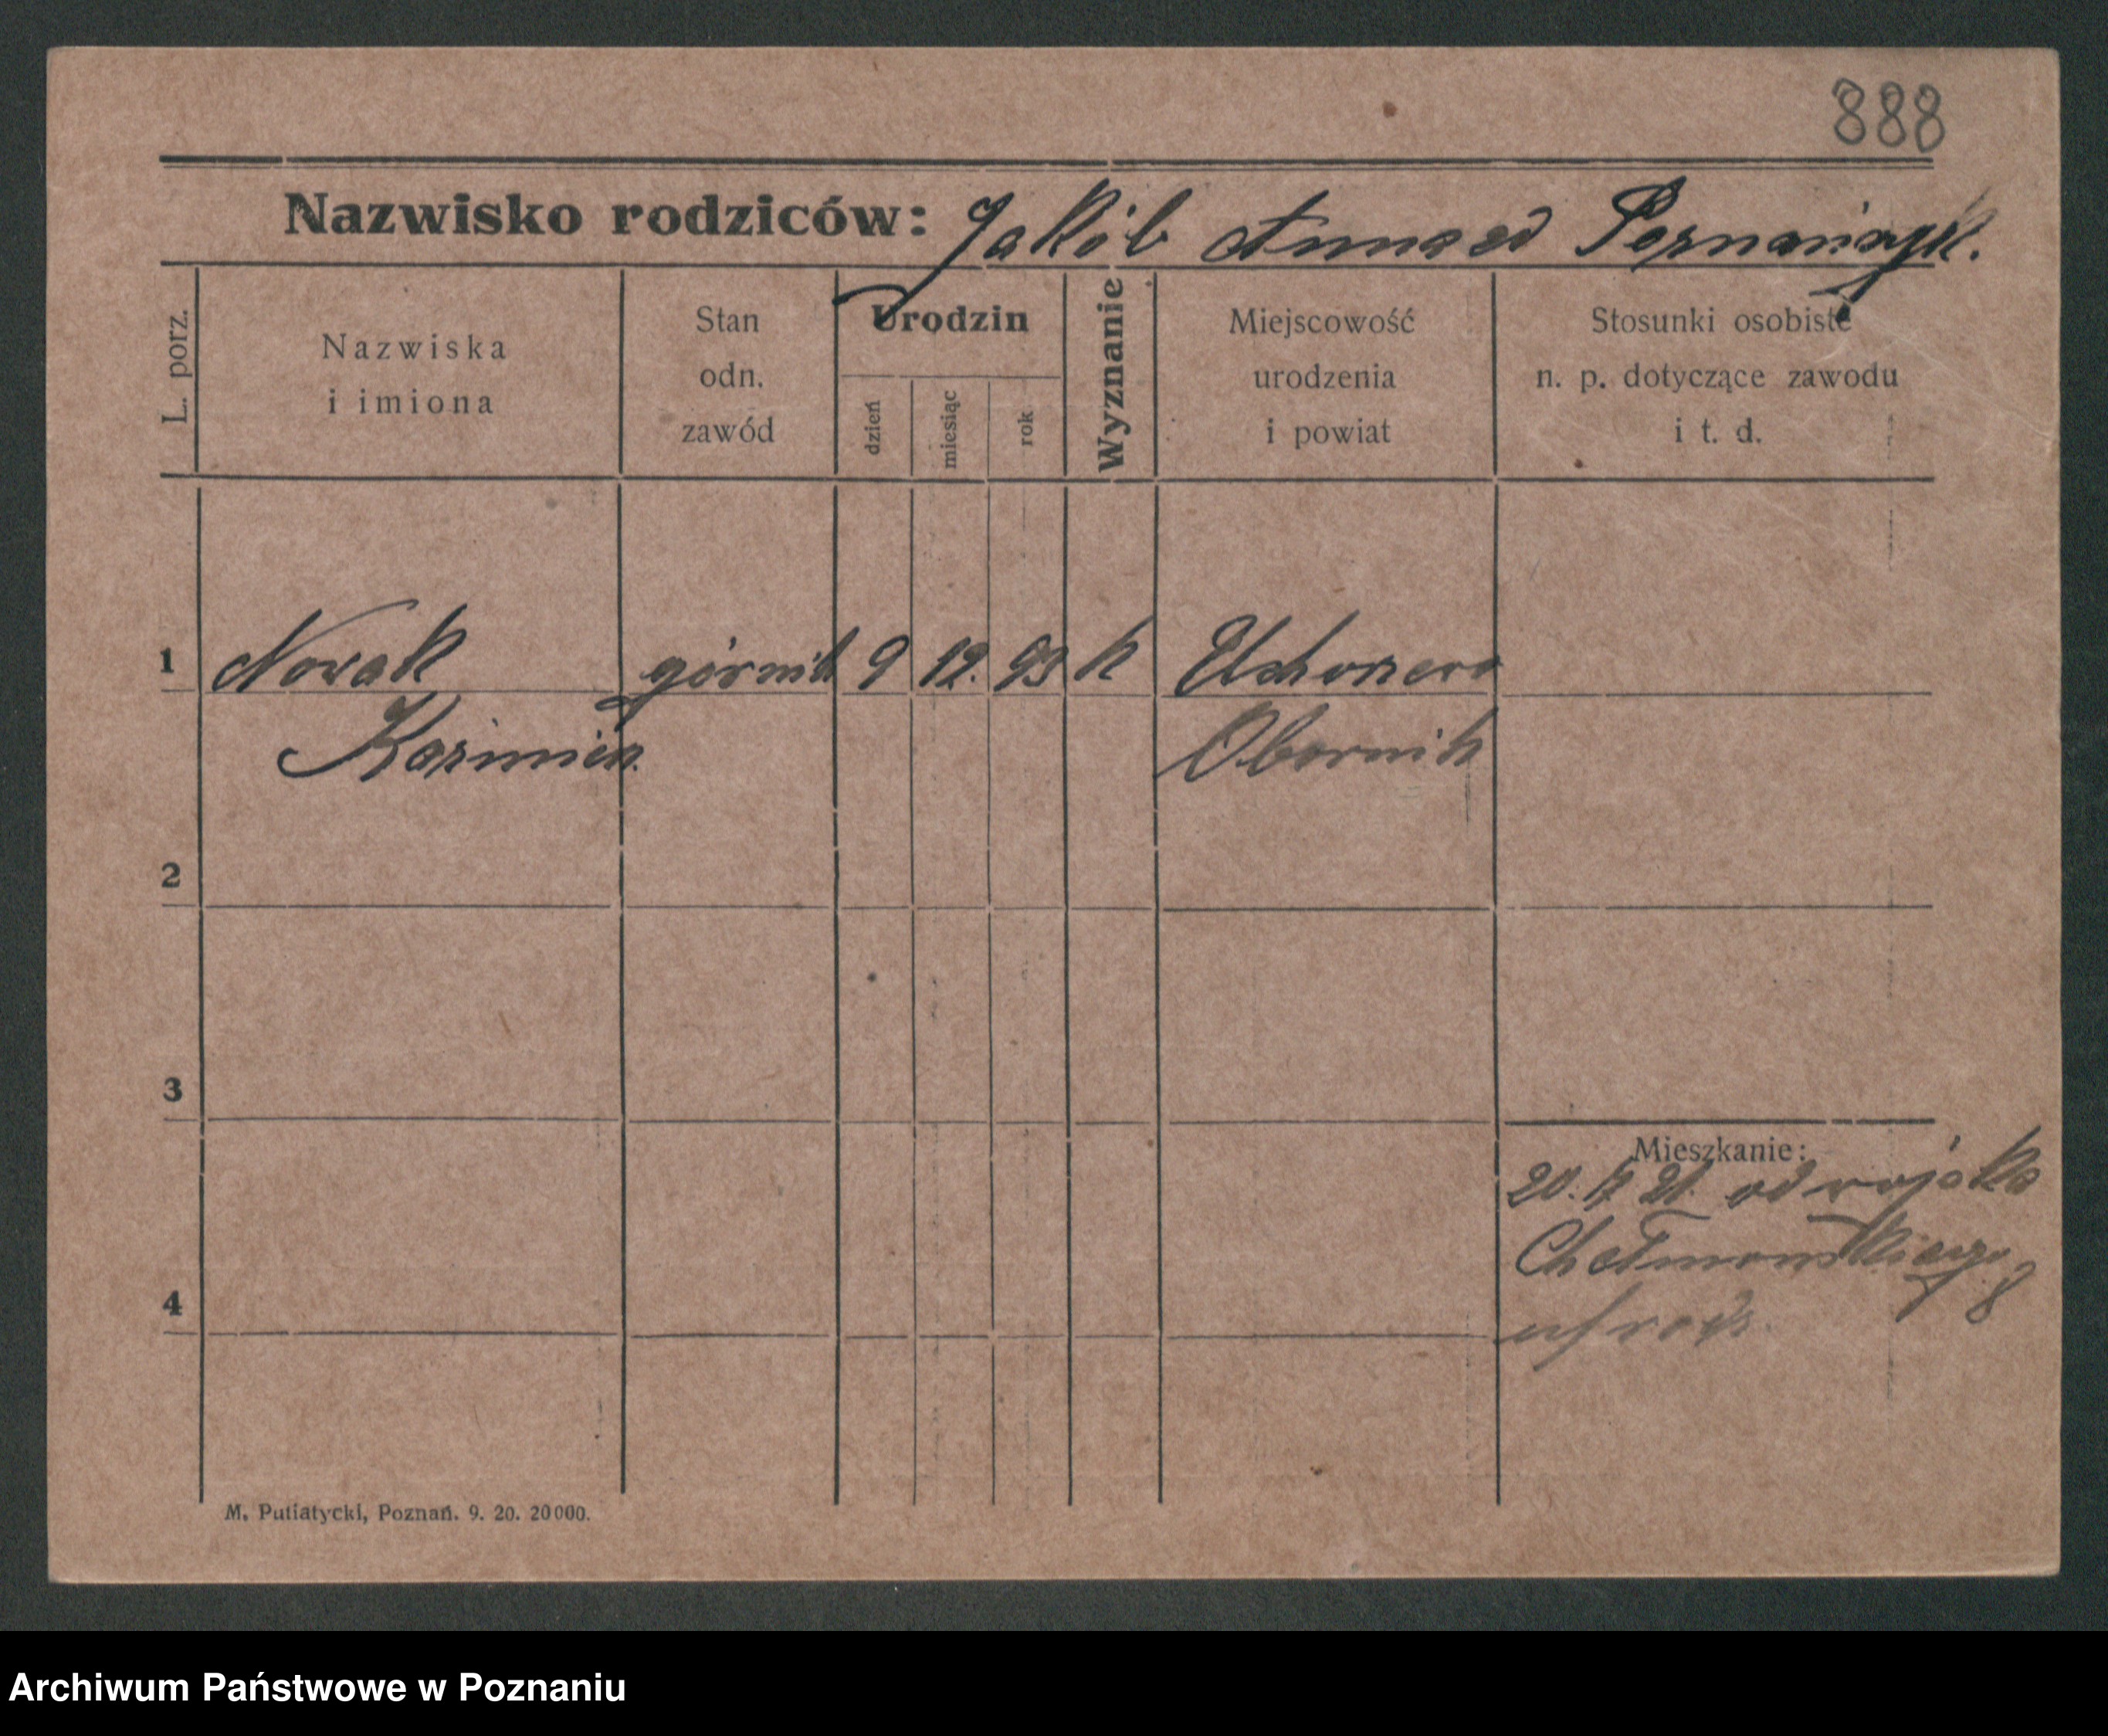 888
Nazwisko rodziców: Jakób Anna zd Poznańczyk.
L. porz.
Nazwiska
i imiona
Stan
odn.
zawód
Urodzin
dzień
miesiąc
rok
Wyznanie
Miejscowość
urodzenia
i powiat
Stosunki osobiste
n. p. dotyczące zawodu
i t. d.
1 Nowak górnik 9 12. 93 k
Kazimierz Obornik
2
3
Mieszkanie:
20. 21. od wojska
Chełmońskiego 8
4
M. Putiatycki, Poznań. 9. 20. 20000.
Archiwum Państwowe w Poznaniu